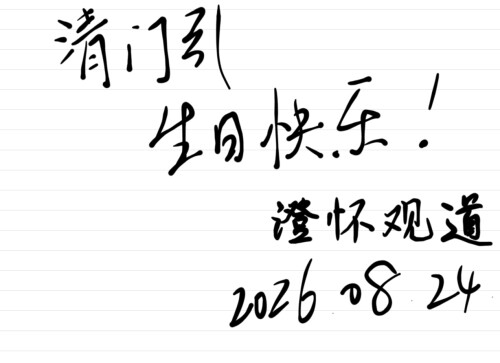 清门引
生日快乐！
澄怀观道
2026 08 24